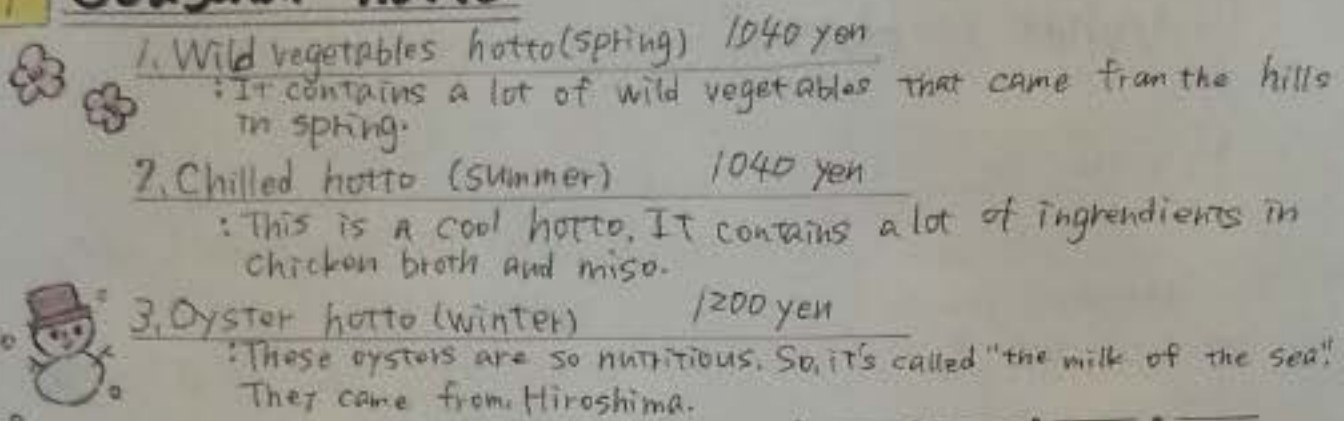 1. Wild vegetables hotto (spring) 1040 yen
: It contains a lot of wild vegetables that came fran the hills
in spring.
2. Chilled hotto (summer) 1040 yen
: This is a cool hotto. It contains a lot of ingrendients in
chicken broth and miso.
3. Oyster hotto (winter) 1200 yen
: These oysters are so nutritious. So, it's called "the milk of the sea".
They came from Hiroshima.